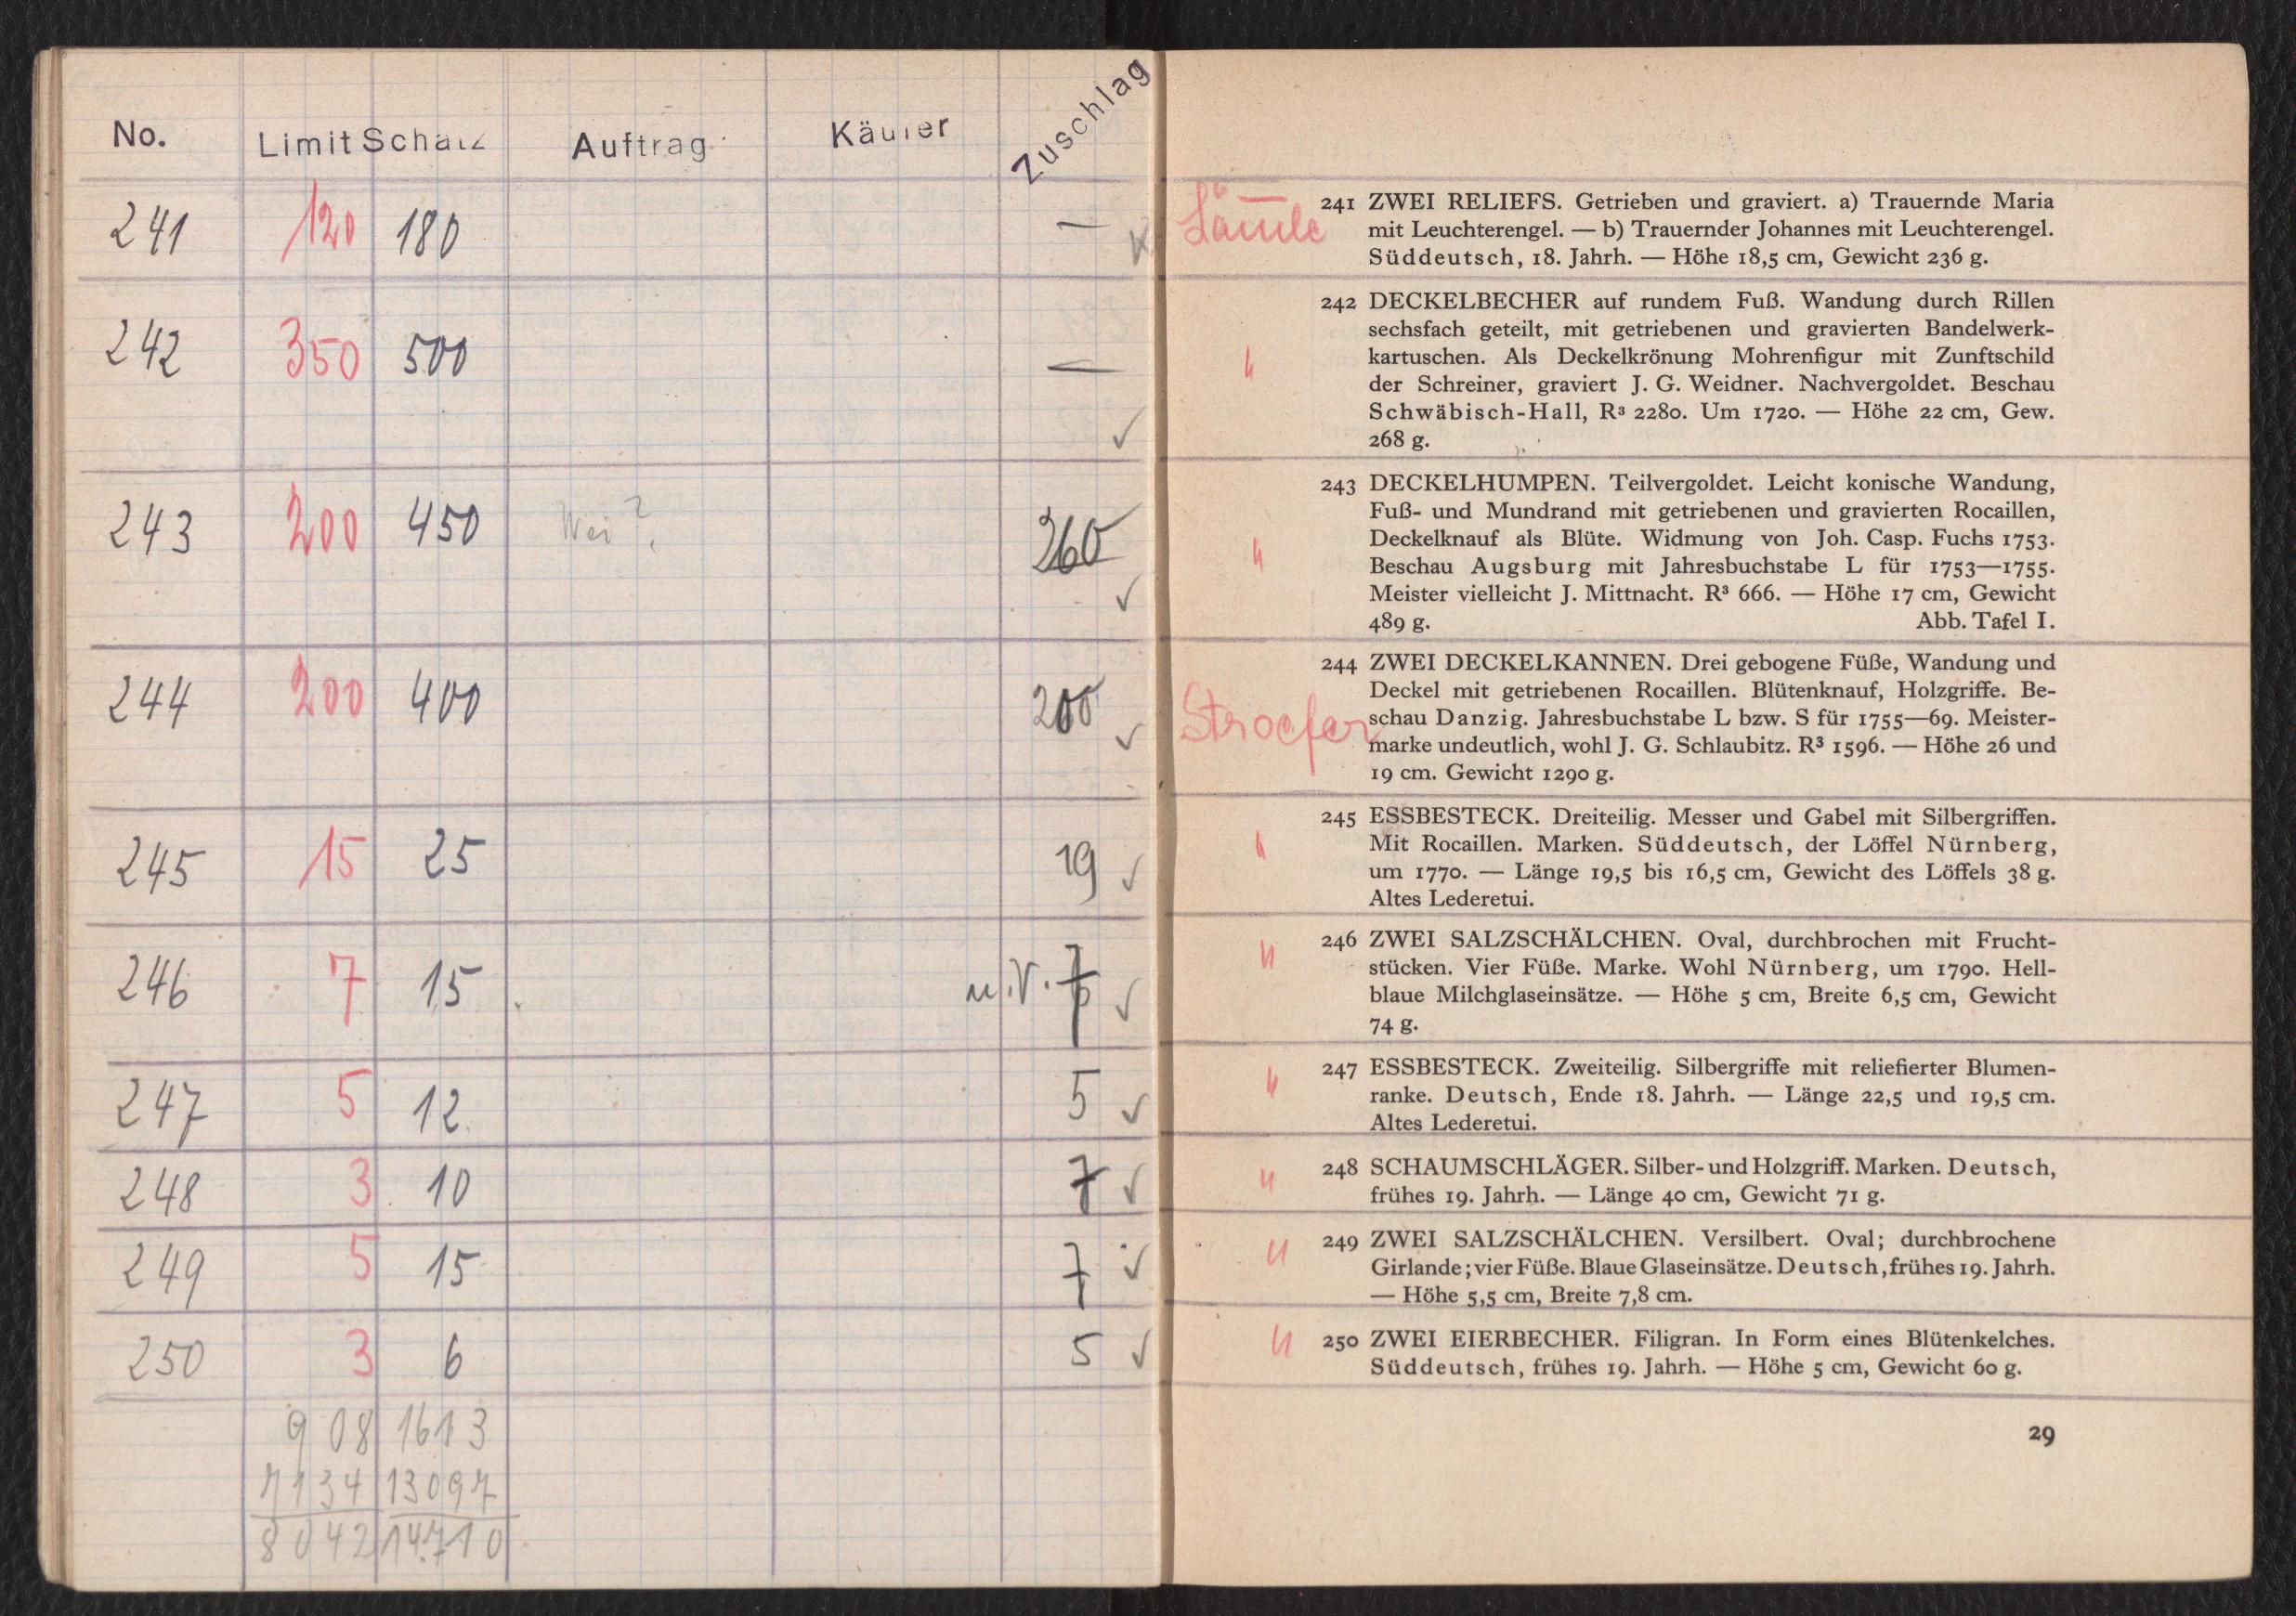 No. Limit Schatz Auftrag Käufer Zuschlag
241 120 180 —
242 350 500 —
243 200 450 Wei? 260 ✓
244 200 400 200 ✓
245 15 25 19 ✓
246 7 15 u.V. 7 ✓
247 5 12 5 ✓
248 3 10 7 ✓
249 5 15 7 ✓
250 3 6 5 ✓
908 1613
7134 13097
8042 14.710
241 ZWEI RELIEFS. Getrieben und graviert. a) Trauernde Maria
mit Leuchterengel. — b) Trauernder Johannes mit Leuchterengel.
Süddeutsch, 18. Jahrh. — Höhe 18,5 cm, Gewicht 236 g.
242 DECKELBECHER auf rundem Fuß. Wandung durch Rillen
sechsfach geteilt, mit getriebenen und gravierten Bandelwerk-
kartuschen. Als Deckelkrönung Mohrenfigur mit Zunftschild
der Schreiner, graviert J. G. Weidner. Nachvergoldet. Beschau
Schwäbisch-Hall, R³ 2280. Um 1720. — Höhe 22 cm, Gew.
268 g.
243 DECKELHUMPEN. Teilvergoldet. Leicht konische Wandung,
Fuß- und Mundrand mit getriebenen und gravierten Rocaillen,
Deckelknauf als Blüte. Widmung von Joh. Casp. Fuchs 1753.
Beschau Augsburg mit Jahresbuchstabe L für 1753—1755.
Meister vielleicht J. Mittnacht. R³ 666. — Höhe 17 cm, Gewicht
489 g. Abb. Tafel I.
Stroefer
244 ZWEI DECKELKANNEN. Drei gebogene Füße, Wandung und
Deckel mit getriebenen Rocaillen. Blütenknauf, Holzgriffe. Be-
schau Danzig. Jahresbuchstabe L bzw. S für 1755—69. Meister-
marke undeutlich, wohl J. G. Schlaubitz. R³ 1596. — Höhe 26 und
19 cm. Gewicht 1290 g.
245 ESSBESTECK. Dreiteilig. Messer und Gabel mit Silbergriffen.
Mit Rocaillen. Marken. Süddeutsch, der Löffel Nürnberg,
um 1770. — Länge 19,5 bis 16,5 cm, Gewicht des Löffels 38 g.
Altes Lederetui.
246 ZWEI SALZSCHÄLCHEN. Oval, durchbrochen mit Frucht-
stücken. Vier Füße. Marke. Wohl Nürnberg, um 1790. Hell-
blaue Milchglaseinsätze. — Höhe 5 cm, Breite 6,5 cm, Gewicht
74 g.
247 ESSBESTECK. Zweiteilig. Silbergriffe mit reliefierter Blumen-
ranke. Deutsch, Ende 18. Jahrh. — Länge 22,5 und 19,5 cm.
Altes Lederetui.
248 SCHAUMSCHLÄGER. Silber- und Holzgriff. Marken. Deutsch,
frühes 19. Jahrh. — Länge 40 cm, Gewicht 71 g.
249 ZWEI SALZSCHÄLCHEN. Versilbert. Oval; durchbrochene
Girlande; vier Füße. Blaue Glaseinsätze. Deutsch, frühes 19. Jahrh.
— Höhe 5,5 cm, Breite 7,8 cm.
250 ZWEI EIERBECHER. Filigran. In Form eines Blütenkelches.
Süddeutsch, frühes 19. Jahrh. — Höhe 5 cm, Gewicht 60 g.
29